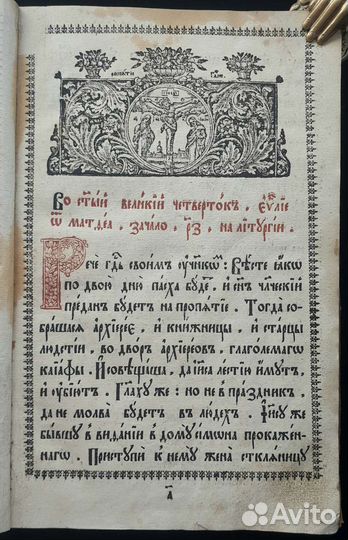 Во ст҃ы́й вели́кїй четверто́къ, єѵ҃лїе
ѿ матѳе́а, зача́ло, р҃з, на літꙋргі́и.
Речѐ гдⷭ҇ь свои́мъ ᲂу҆ченикѡ́мъ: Вѣ́сте ꙗ҆́кѡ
по двою̀ дню̀ па́сха бꙋ́детъ, и҆ сн҃ъ чл҃ческїй
пре́данъ бꙋ́детъ на пропѧ́тїе. Тогда̀ со-
бра́шасѧ а҆рхїере́є, и҆ кни́жницы, и҆ ста́рцы
людстїи, во дво́ръ а҆рхїере́овъ, глаго́лемагѡ
каїа́фы. И҆совѣща́ша, да і҆и҃са ле́стїю и҆́мꙋтъ,
и҆ ᲂу҆бїю́тъ. Гл҃ахꙋ же: но не в пра́здникъ,
да не молва̀ бꙋ́детъ в лю́дехъ. І҆и҃сꙋ же
бы́вшꙋ в виѳа́нїи в домꙋ̀ си́мѡна прокаже́н-
нагѡ. Пристꙋпѝ к немꙋ̀ жена̀ стклѧ́ницꙋ
а҃
Avito